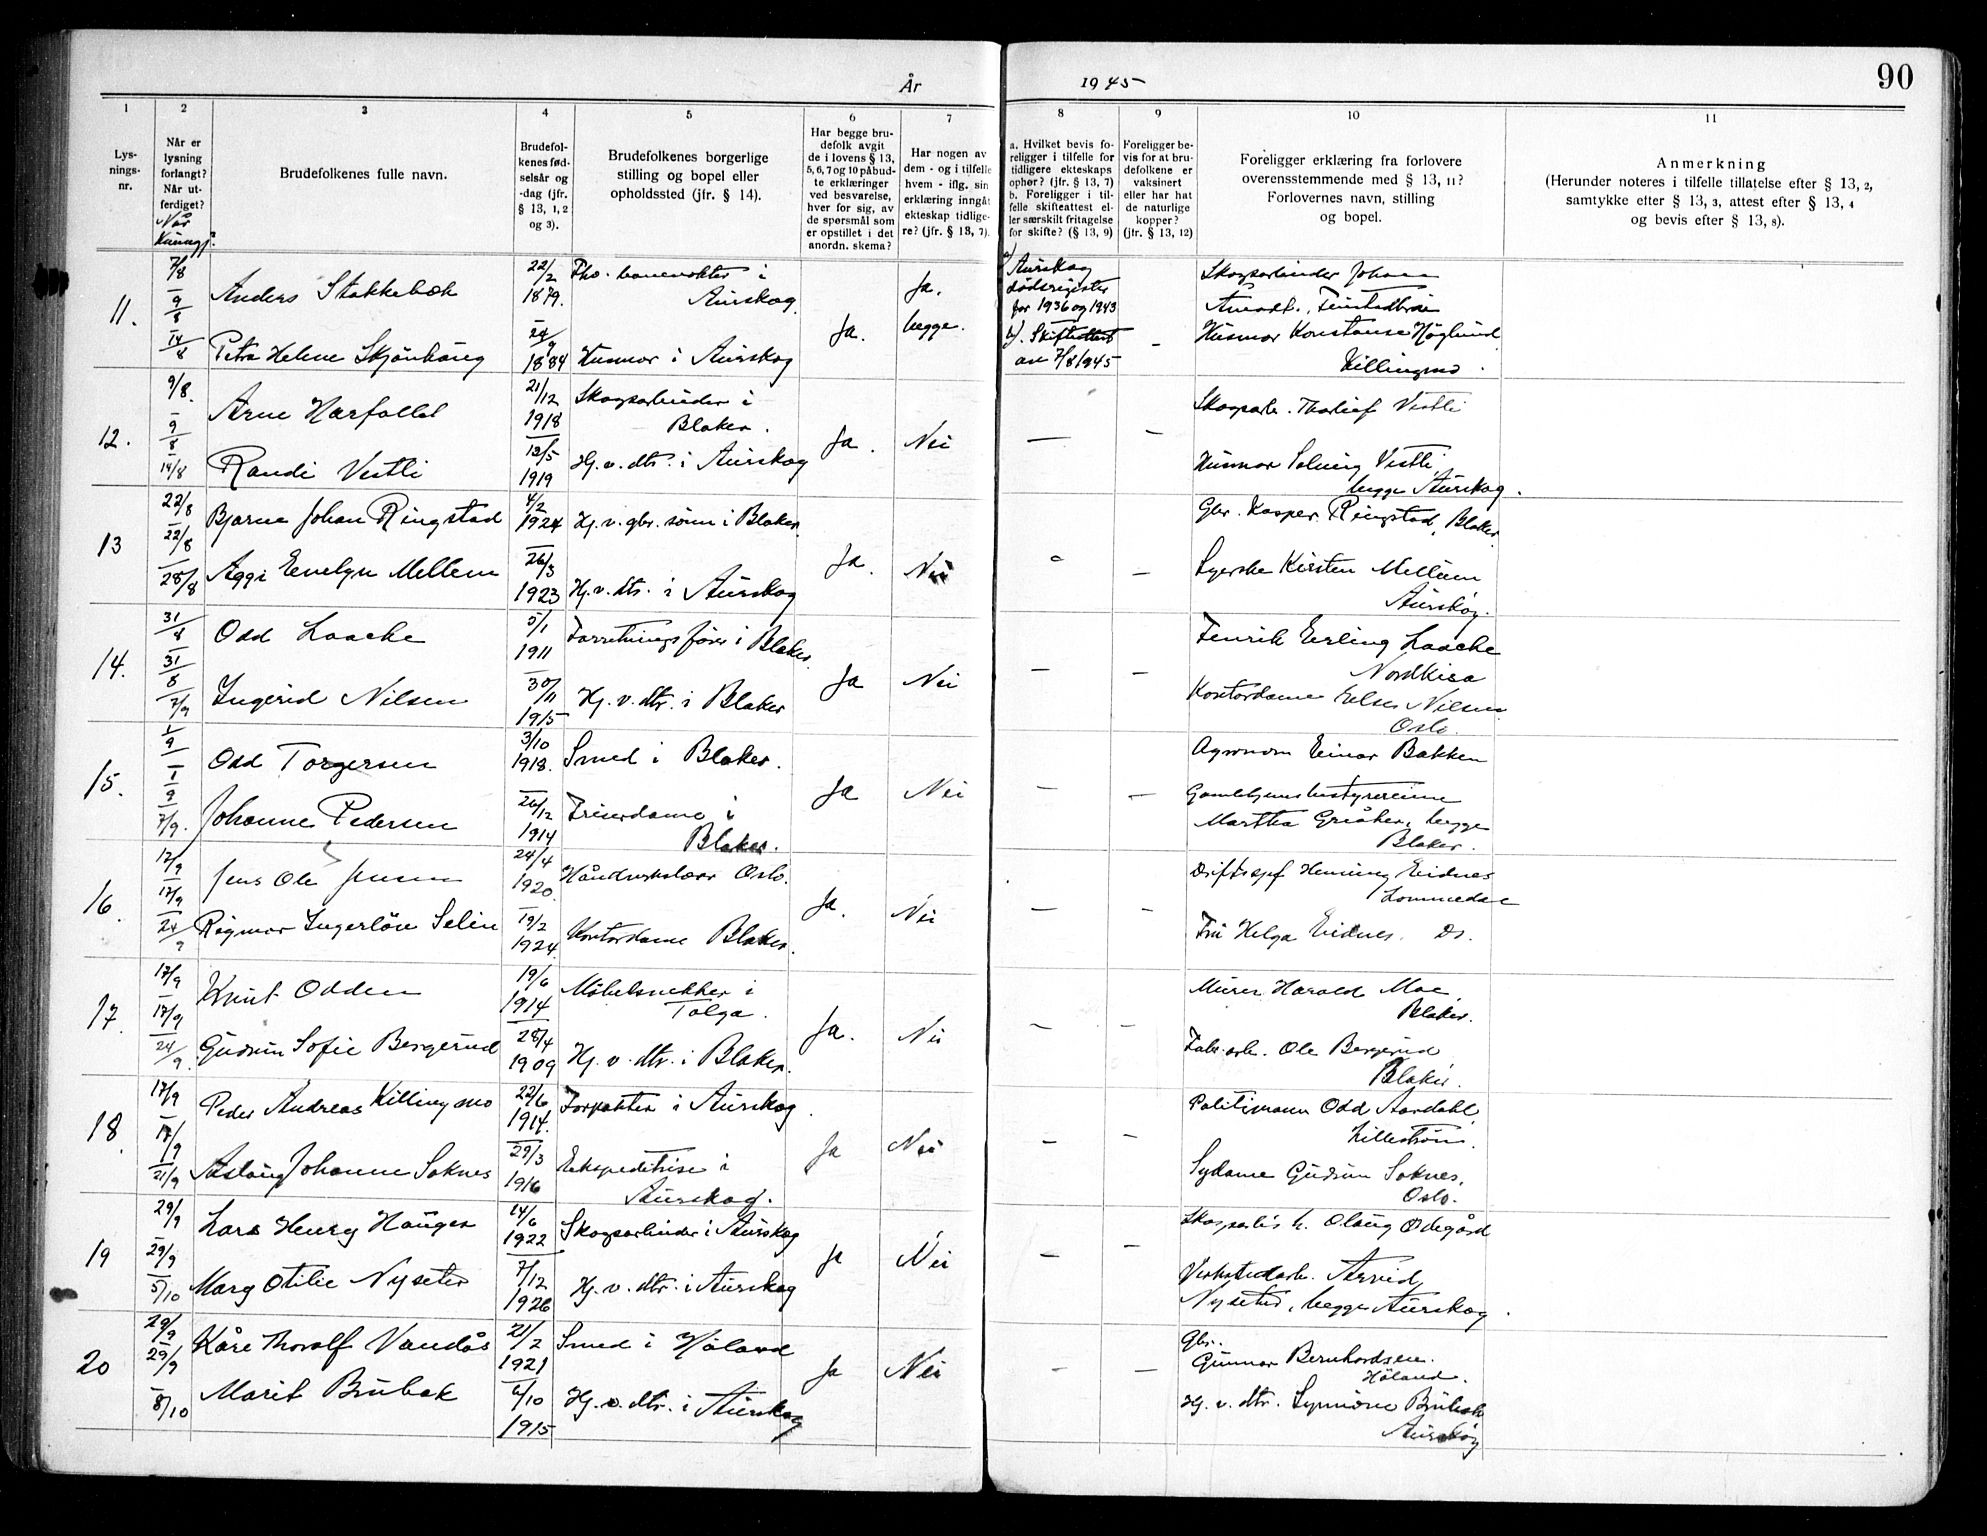 År 1945
90
1
2
3
4
5
6
7
8
9
10
11
Lys-
nings-
nr.
Når er
lysning
forlangt?
Når ut-
ferdiget?
Når
Kunngj.?
Brudefolkenes fulle navn.
Brudefol-
kenes fød-
selsår og
-dag (jfr.
§ 13, 1, 2
og 3).
Brudefolkenes borgerlige
stilling og bopel eller
opholdssted (jfr. § 14).
Har begge bru-
defolk avgit
de i lovens § 13,
5, 6, 7 og 10 påbud-
te erklæringer
ved besvarelse,
hver for sig, av
de spørsmål som
er opstillet i det
anordn. skema?
Har nogen av
dem - og i tilfelle
hvem - iflg. sin
erklæring inngåt
ekteskap tidlige-
re? (jfr. § 13, 7).
a. Hvilket bevis fo-
religger i tilfelle for
tidligere ekteskaps
ophør? (jfr. § 13, 7)
b. Foreligger i til-
felle skifteattest el-
ler særskilt fritagelse
for skifte? (§ 13, 9)
Foreligger be-
vis for at bru-
defolkene er
vaksinert
eller har hat
de naturlige
kopper?
(jfr. § 13, 12)
Foreligger erklæring fra forlovere
overensstemmende med § 13, 11?
Forlovernes navn, stilling
og bopel.
Anmerkning
(Herunder noteres i tilfelle tillatelse efter § 13, 2,
samtykke efter § 13, 3, attest efter § 13, 4
og bevis efter § 13, 8).
11.
7/8
9/8
14/8
Anders Stakkebæk
22/2
1879.
Fhv. banevokter i
Aurskog
Petra Helene Skjønhaug
24/9
1884
Husmor i Aurskog
Ja.
Ja.
begge.
a) Aurskog
dødsregister
for 1936 og 1943
b). Skifteattest
av 7/8 1945
–
Skogsarbeider Johan
Husmor Konstanse Høglund
Killingmo.
12.
9/8.
9/8
14/8
Arne Harfallet
21/12
1918
Skogsarbeider i
Blaker.
Randi Vestli
12/5
1919
Hj. v. dtr. i Aurskog
Ja.
Nei
–
–
Skogsarb. Thorleif Vestli
Husmor Solveig Vestli
begge Aurskog.
13
22/8
22/8
28/8
Bjarne Johan Ringstad
4/2
1924
Hj. v. gbr. sønn i Blaker.
Aggi Evelyn Mellem
26/3
1923
Hj. v. dtr. i Aurskog
Ja.
Nei
–
–
Gbr. Kasper Ringstad, Blaker.
Syerske Kirsten Mellem
Aurskog.
14.
31/8
31/8
7/9
Odd Laache
5/1
1911
Forretningsfører i Blaker.
Ingerid Nilsen
30/11
1915
Hj. v. dtr. i Blaker
Ja
Nei
–
–
Fenrik Erling Laache
Nordkisa
Kontordame Else Nilsen
Oslo.
15.
1/9
1/9
7/9.
Odd Torgersen
3/10
1918.
Smed i Blaker.
Johanne Pedersen
26/12
1914
Friserdame i
Blaker.
Ja
Nei
–
–
Agronom Einar Bakken
Gamlehjemsbestyrerinne
Martha Griåker, begge
Blaker.
16.
17/9
17/9
24/9
Jens Ole Jensen
24/4
1920.
Håndverkslærer Oslo.
Ragmor Ingerløv Selin
19/2
1924.
Kontordame Blaker.
Ja.
Nei
–
–
Driftssjef Henning Eidnes
Lommedal
Fru Helga Eidnes. Ds.
17.
17/9
17/9
24/9.
Knut Odden
19/6
1914
Møbelsnekker i
Tolga.
Gudrun Sofie Bergerud
28/4
1909
Hj. v. dtr. i Blaker.
Ja.
Nei
–
–
Murer Harald Moe
Blaker.
Fabr. arb. Ole Bergerud
Blaker.
18.
17/9
17/9
21/9
Peder Andreas Killingmo
22/6
1914.
Forpakter i Aurskog.
Aslaug Johanne Soknes
29/3
1916
Ekspeditrise i
Aurskog.
Ja
Nei
–
–
Politimann Odd Aardahl
Lillestrøm.
Sydame Gudrun Soknes,
Oslo.
19
29/9
29/9
5/10
Lars Henry Hauger
14/6
1922
Skogsarbeider i Aurskog
Mary Otilie Nyseter
7/12
1926
Hj. v. dtr. i Aurskog
Ja
Nei
–
–
Olaug Ødegård
Verkstedarb. Arvid
Nyseter, begge Aurskog.
20
29/9
29/9
8/10
Kåre Thorolf Vandås
21/2
1921
Smed i Høland
Marit Brubak
6/10
1915
Hj. v. dtr. i Aurskog
Ja
Nei
–
–
Gbr.
Gunnar Bernhardsen.
Høland.
Hj. v. dtr. Synnøve Brubak
Aurskog